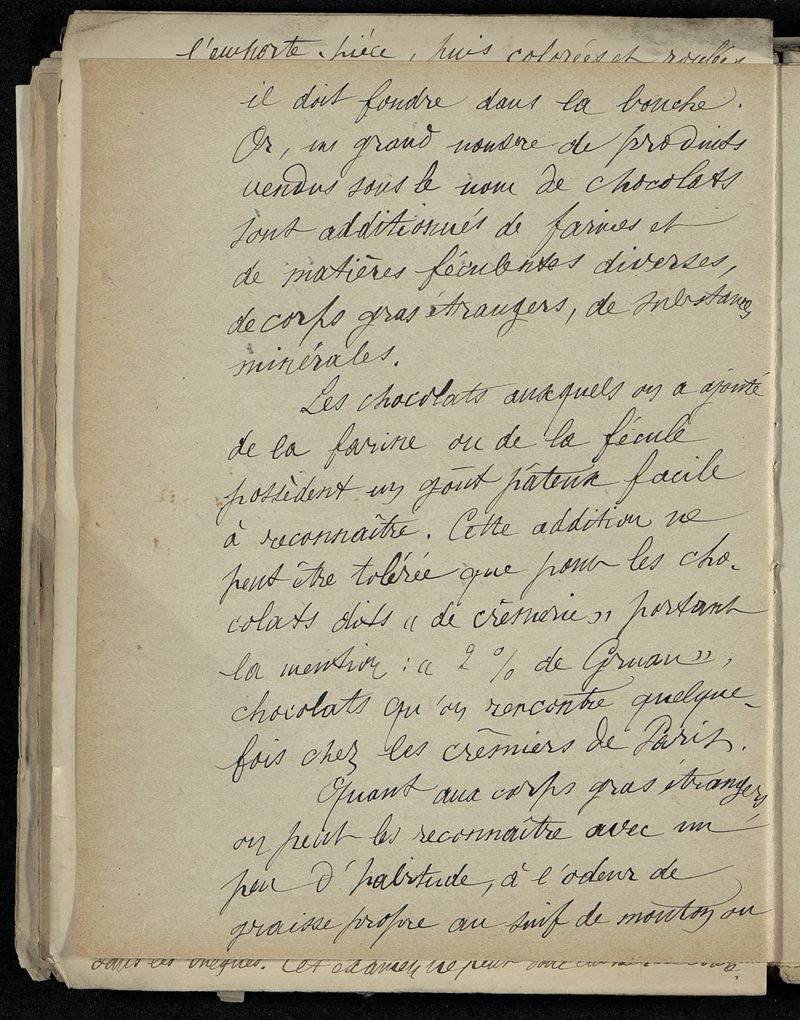 l'emporte-pièce, puis colorées et roulées
il doit fondre dans la bouche.
Or, un grand nombre de produits
vendus sous le nom de chocolats
sont additionnés de farines et
de matières féculentes diverses,
de corps gras étrangers, de substances
minérales.
Les chocolats auxquels on a ajouté
de la farine ou de la fécule
possèdent un goût pâteux facile
à reconnaître. Cette addition ne
peut être tolérée que pour les cho-
colats dits « de crêmerie » portant
la mention : « 2 % de Gruau »,
chocolats qu'on rencontre quelque-
fois chez les crêmiers de Paris.
Quant aux corps gras étrangers
on peut les reconnaître avec un
peu d'habitude, à l'odeur de
graisse propre au suif de mouton ou
dans les . Cet examen ne peut donc